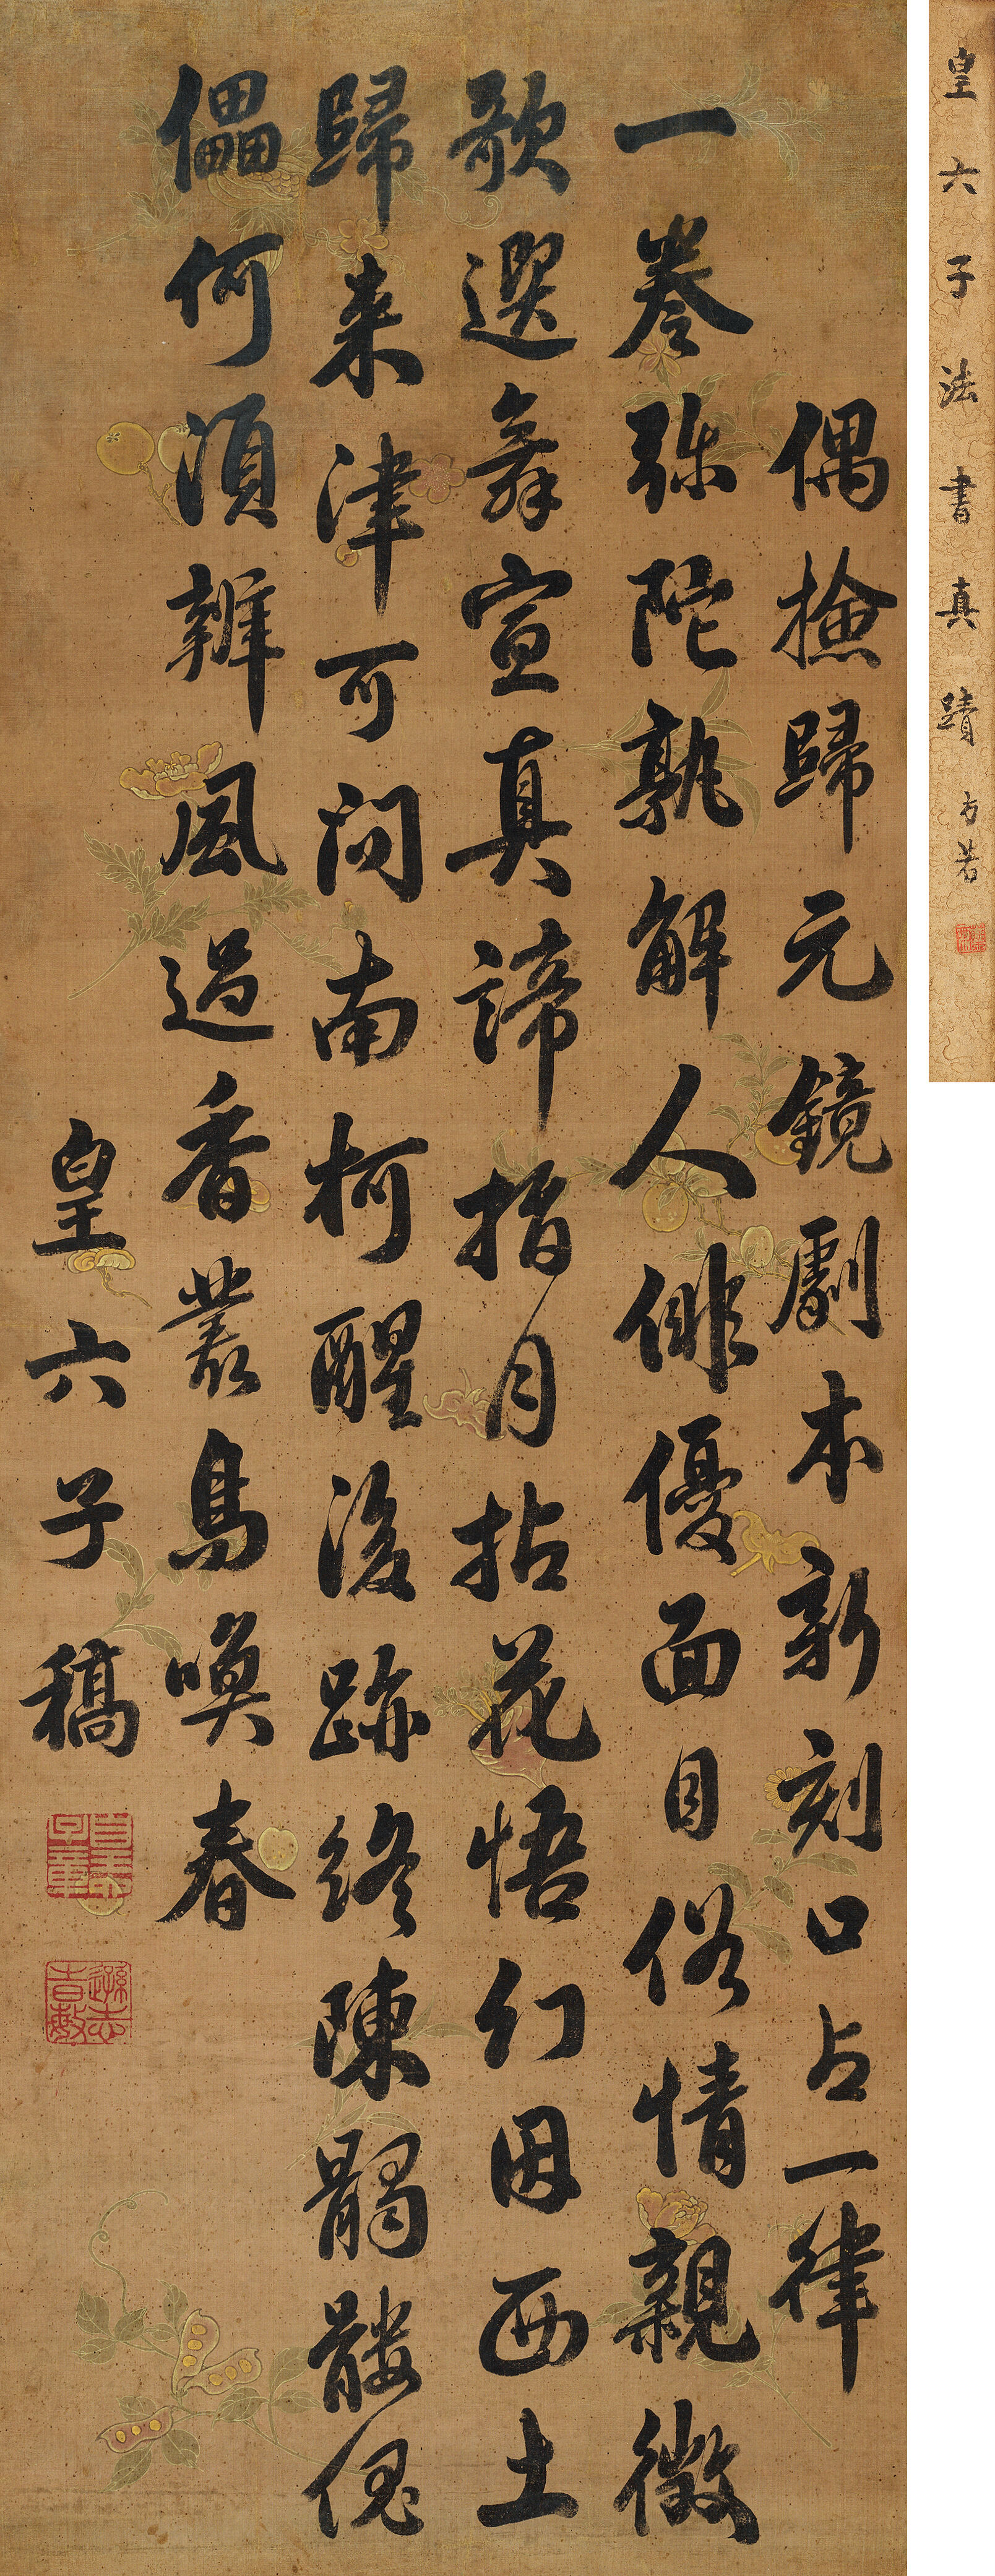 偶撿歸元鏡劇本新刻口占一律
一卷弥陀孰解人俳優面目俗情親徵
歌選舞宣真諦指月拈花悟幻因西土
歸来津可问南柯醒後跡終陳髑髏傀
儡何須辨風過香叢鳥喚春
皇六子稿
皇六子法書真蹟
方若